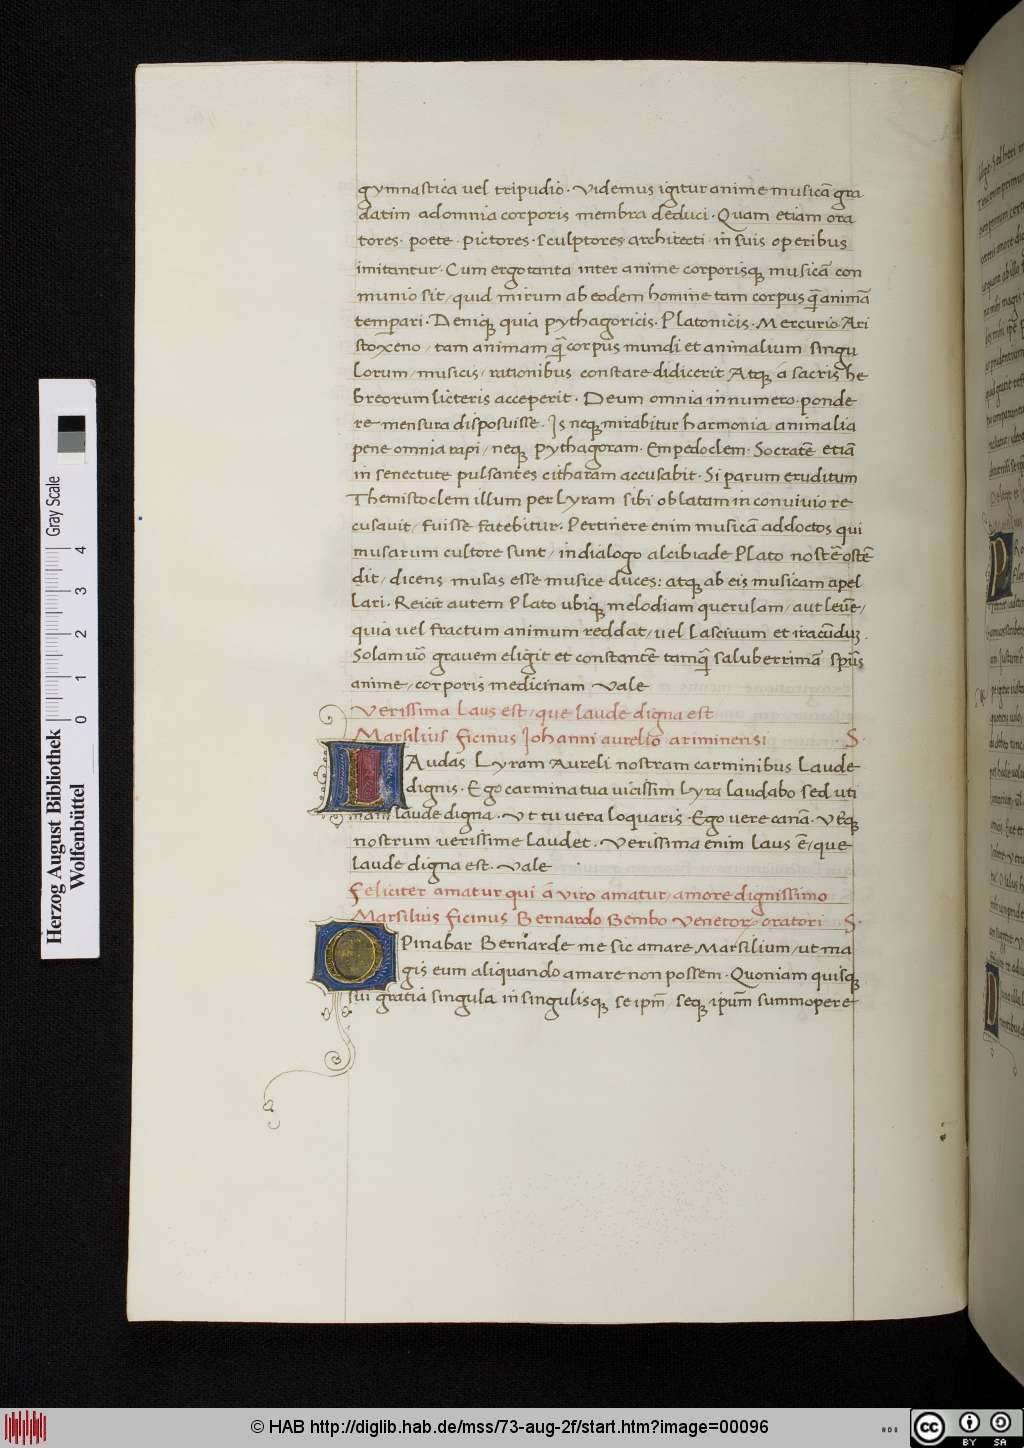 gymnastica uel tripudio. Videmus igitur anime musicā gra
datim ad omnia corporis membra deduci. Quam etiam ora
tores. poete. pictores. sculptores architecti. in suis operibus
imitantur. Cum ergo tanta inter anime corporisq; musicā con
munio sit/ quid mirum ab eodem homine tam corpus q̄ animā
temperari. Deniq; quia pythagoricis. Platonicis. Mercurio. Ari
stoxeno/ tam animam q̄ corpus mundi et animalium singu
lorum/ musicis/ rationibus constare didicerit Atq; a sacris he
breorum licteris acceperit. Deum omnia in numero. ponde
re. mensura disposuisse. Is neq; mirabitur harmonia animalia
pene omnia rapi/ neq; pythagoram. Empedoclem. Socratē etiā
in senectute pulsantes citharam accusabit. Si parum eruditum
Themistoclem illum per lyram sibi oblatam in conuiuio re
cusauit/ fuisse fatebitur. Pertinere enim musicā ad doctos qui
musarum cultore sunt/ in dialogo alcibiade Plato nostē ostē
dit/ dicens musas esse musice duces: atq; ab eis musicam apel
lari. Reicit autem Plato ubiq; melodiam querulam/ aut leuē/
quia uel fractum animum reddat/ uel lasciuum et iracūdu3.
Solam uō grauem eligit et constantē tamq̄ saluberrimā spūs
anime/ corporis medicinam Vale
Verissima laus est/ que laude digna est
Marsilius ficinus Johanni aurelio ariminensi S.
LAudas Lyram Aureli nostram carminibus laude
dignis. Ego carmina tua uicissim lyra laudabo sed uti
nam laude digna. Vt tu uera loquaris. Ego uere canā. Vt̄q;
nostrum uerissime laudet. Verissima enim laus ē/ que
laude digna est. Vale
Feliciter amatur qui ā uiro amatur/ amore dignissimo
Marsilius ficinus Bernardo Bembo Venetor. oratori S.
OPinabar Bernarde me sic amare Marsilium/ ut ma
gis eum aliquando amare non possem. Quoniam quisq;
sui gratiā singula in singulisq; se ipm̄/ seq; ipsum summopere
Herzog August Bibliothek
Wolfenbüttel
Gray Scale
0 1 2 3 4
© HAB http://diglib.hab.de/mss/73-aug-2f/start.htm?image=00096
cc BY SA